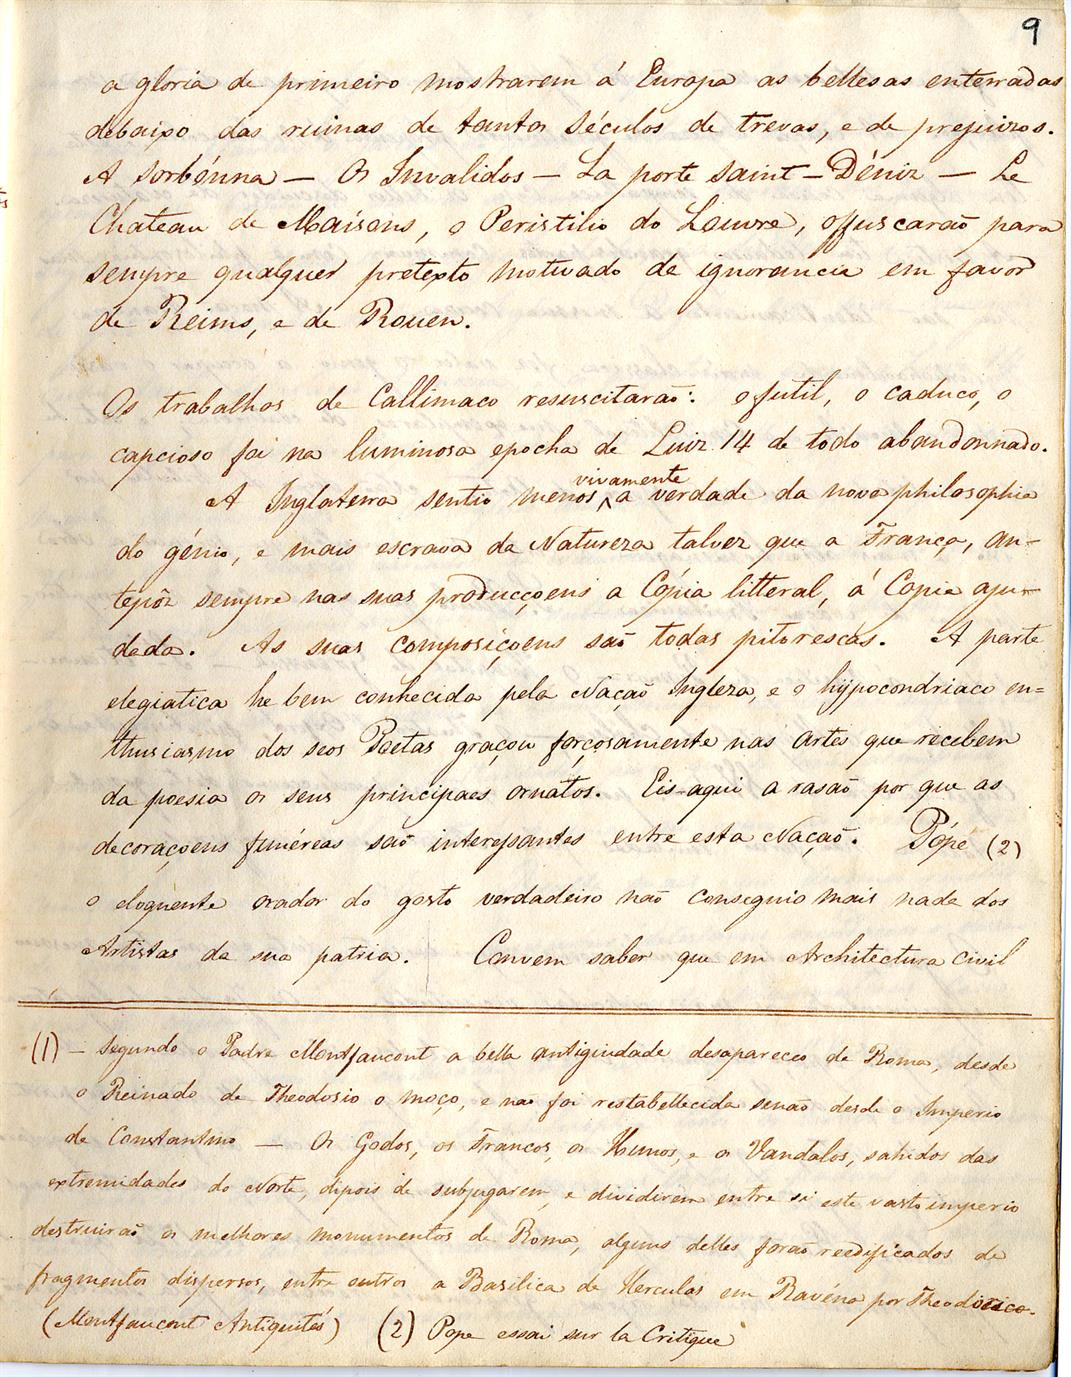 9
a gloria de primeiro mostrarem á Europa as bellesas enterradas
debaixo das ruinas de tantos Séculos de trevas, e de prejuizos.
A Sorbénna — Os Invalidos — La porte Saint-Déniz — Le
Chateau de Maisons, o Peristilio do Louvre, offuscaraõ para
sempre qualquer pretexto motivado de ignorancia em favor
de Reims, e de Rouen.
Os trabalhos de Callimaco resuscitaraõ: o futil, o caduco, o
capcioso foi na luminosa epocha de Luiz 14 de todo abandonnado.
A Inglaterra sentio menos vivamente a verdade da nova philosophia
do génio, e mais escrava da Natureza talvez que a França, an-
tepôz sempre nas suas producçoens a Cópia litteral, á Copia aju-
dada. As suas composiçoens saõ todas pitorescas. A parte
elegiatica he bem conhecida pela Naçaõ Ingleza, e o hypocondriaco en=
thusiasmo dos seos Poetas graçou forçosamente nas artes que recebem
da poesia os seus principaes ornatos. Eis-aqui a rasaõ por que as
decoraçoens funéreas saõ interessantes entre esta Naçaõ. Pópe (2)
o eloquente orador do gosto verdadeiro naõ conseguio mais nada dos
Artistas da sua patria. Convem saber que em Architectura Civil
(1) — Segundo o Padre Montfaucont a bella antiguidade desapareceo de Roma, desde
o Reinado de Theodosio o moço, e naõ foi restabellecida senaõ desde o Imperio
de Constantino — Os Godos, os Francos, os Hunos, e os Vandalos, sahidos das
extremidades do Norte, dipois de subjugarem, e dividirem entre si este vasto imperio
destruiraõ os melhores monumentos de Roma, alguns delles foraõ reedificados de
fragmentos dispersos, entre outros a Basilica de Herculas em Ravéna por Theodorico.
(Montfaucont Antiquités) (2) Pope essai sur la Critique